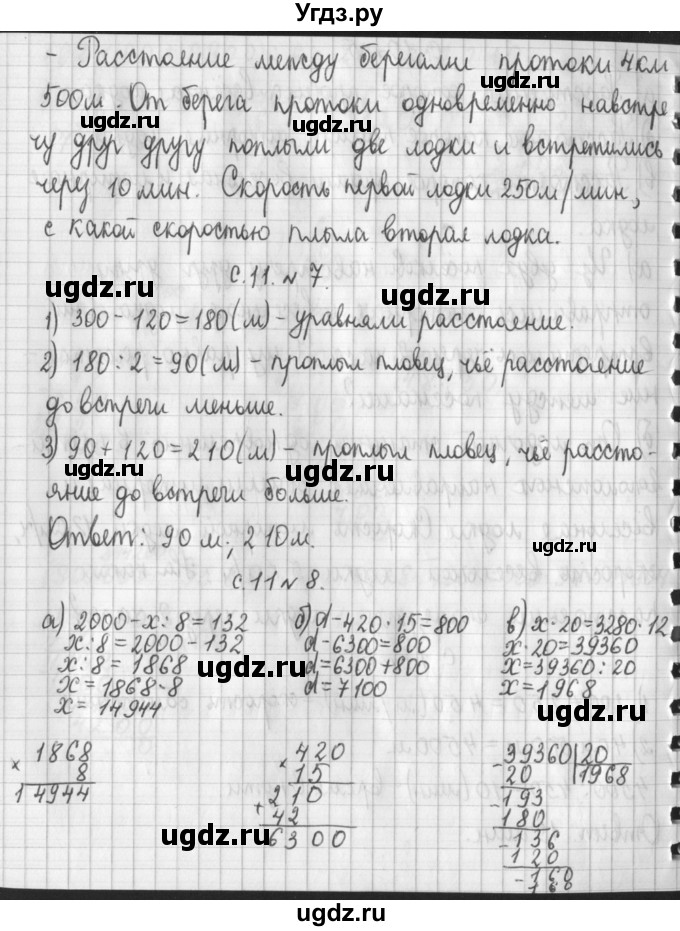 Угдз.ру
- Расстояние между берегами протоки 4 км
500 м. От берега протоки одновременно навстре
чу друг другу поплыли две лодки и встретились
через 10 мин. Скорость первой лодки 250 м/мин,
с какой скоростью плыла вторая лодка.
с. 11. № 7.
1) 300 - 120 = 180 (м) - уравняли расстояние.
2) 180 : 2 = 90 (м) - проплыл пловец, чьё расстояние
до встречи меньше.
3) 90 + 120 = 210 (м) - проплыл пловец, чьё рассто-
яние до встречи больше.
Ответ: 90 м; 210 м.
с. 11 № 8.
а) 2000 - x : 8 = 132 б) d - 420 · 15 = 800 в) x · 20 = 3280 · 12
x : 8 = 2000 - 132 d - 6300 = 800 x · 20 = 39360
x : 8 = 1868 d = 6300 + 800 x = 39360 : 20
x = 1868 · 8 d = 7100 x = 1968
x = 14944
1868 420 39360 | 20
× 8 × 15 - 20 1968
14944 210 - 193
+ 42 180
6300 - 136
120
- 160
ugdz.ru
ugdz.ru
ugdz.ru
ugdz.ru
ugdz.ru
ugdz.ru
ugdz.ru
ugdz.ru
ugdz.ru
ugdz.ru
ugdz.ru
ugdz.ru
ugdz.ru